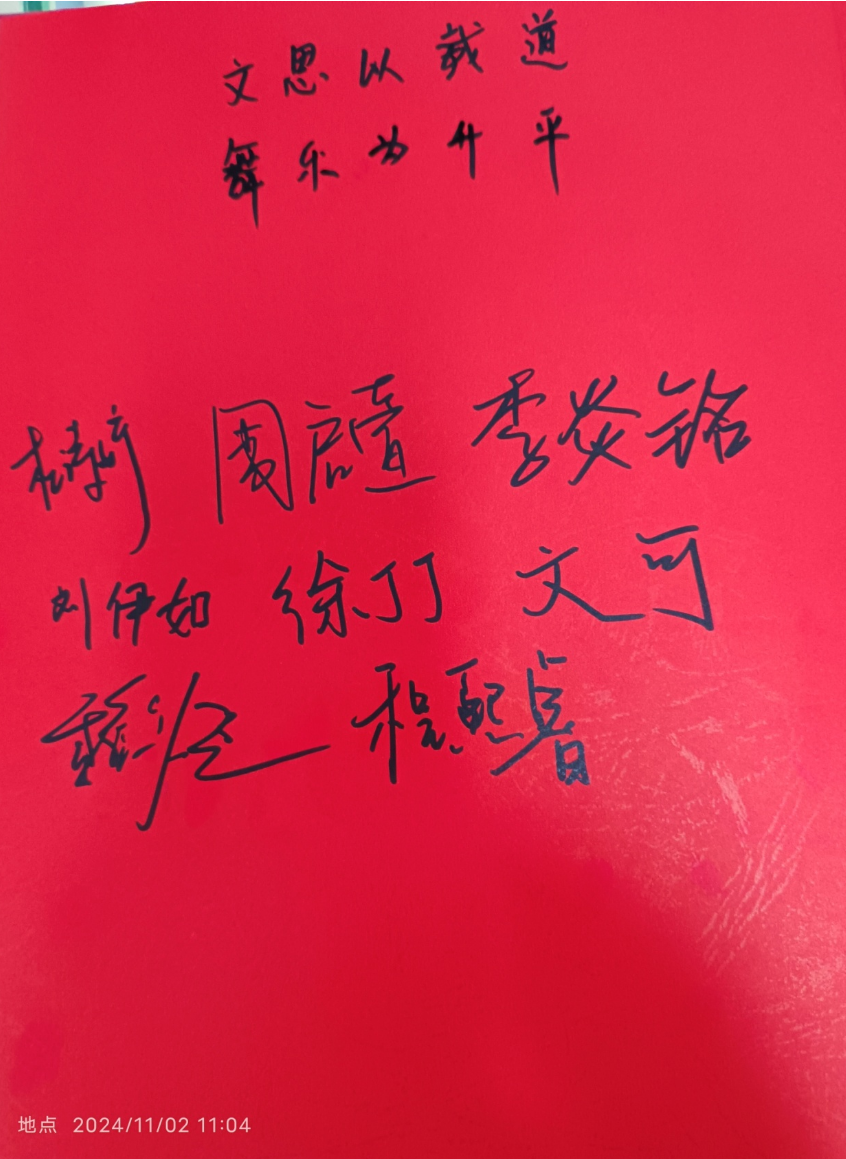 文思以载道
舞乐为升平
周启 李炎铭
刘伊如 徐丁丁 文可
程熙
地点 2024/11/02 11:04